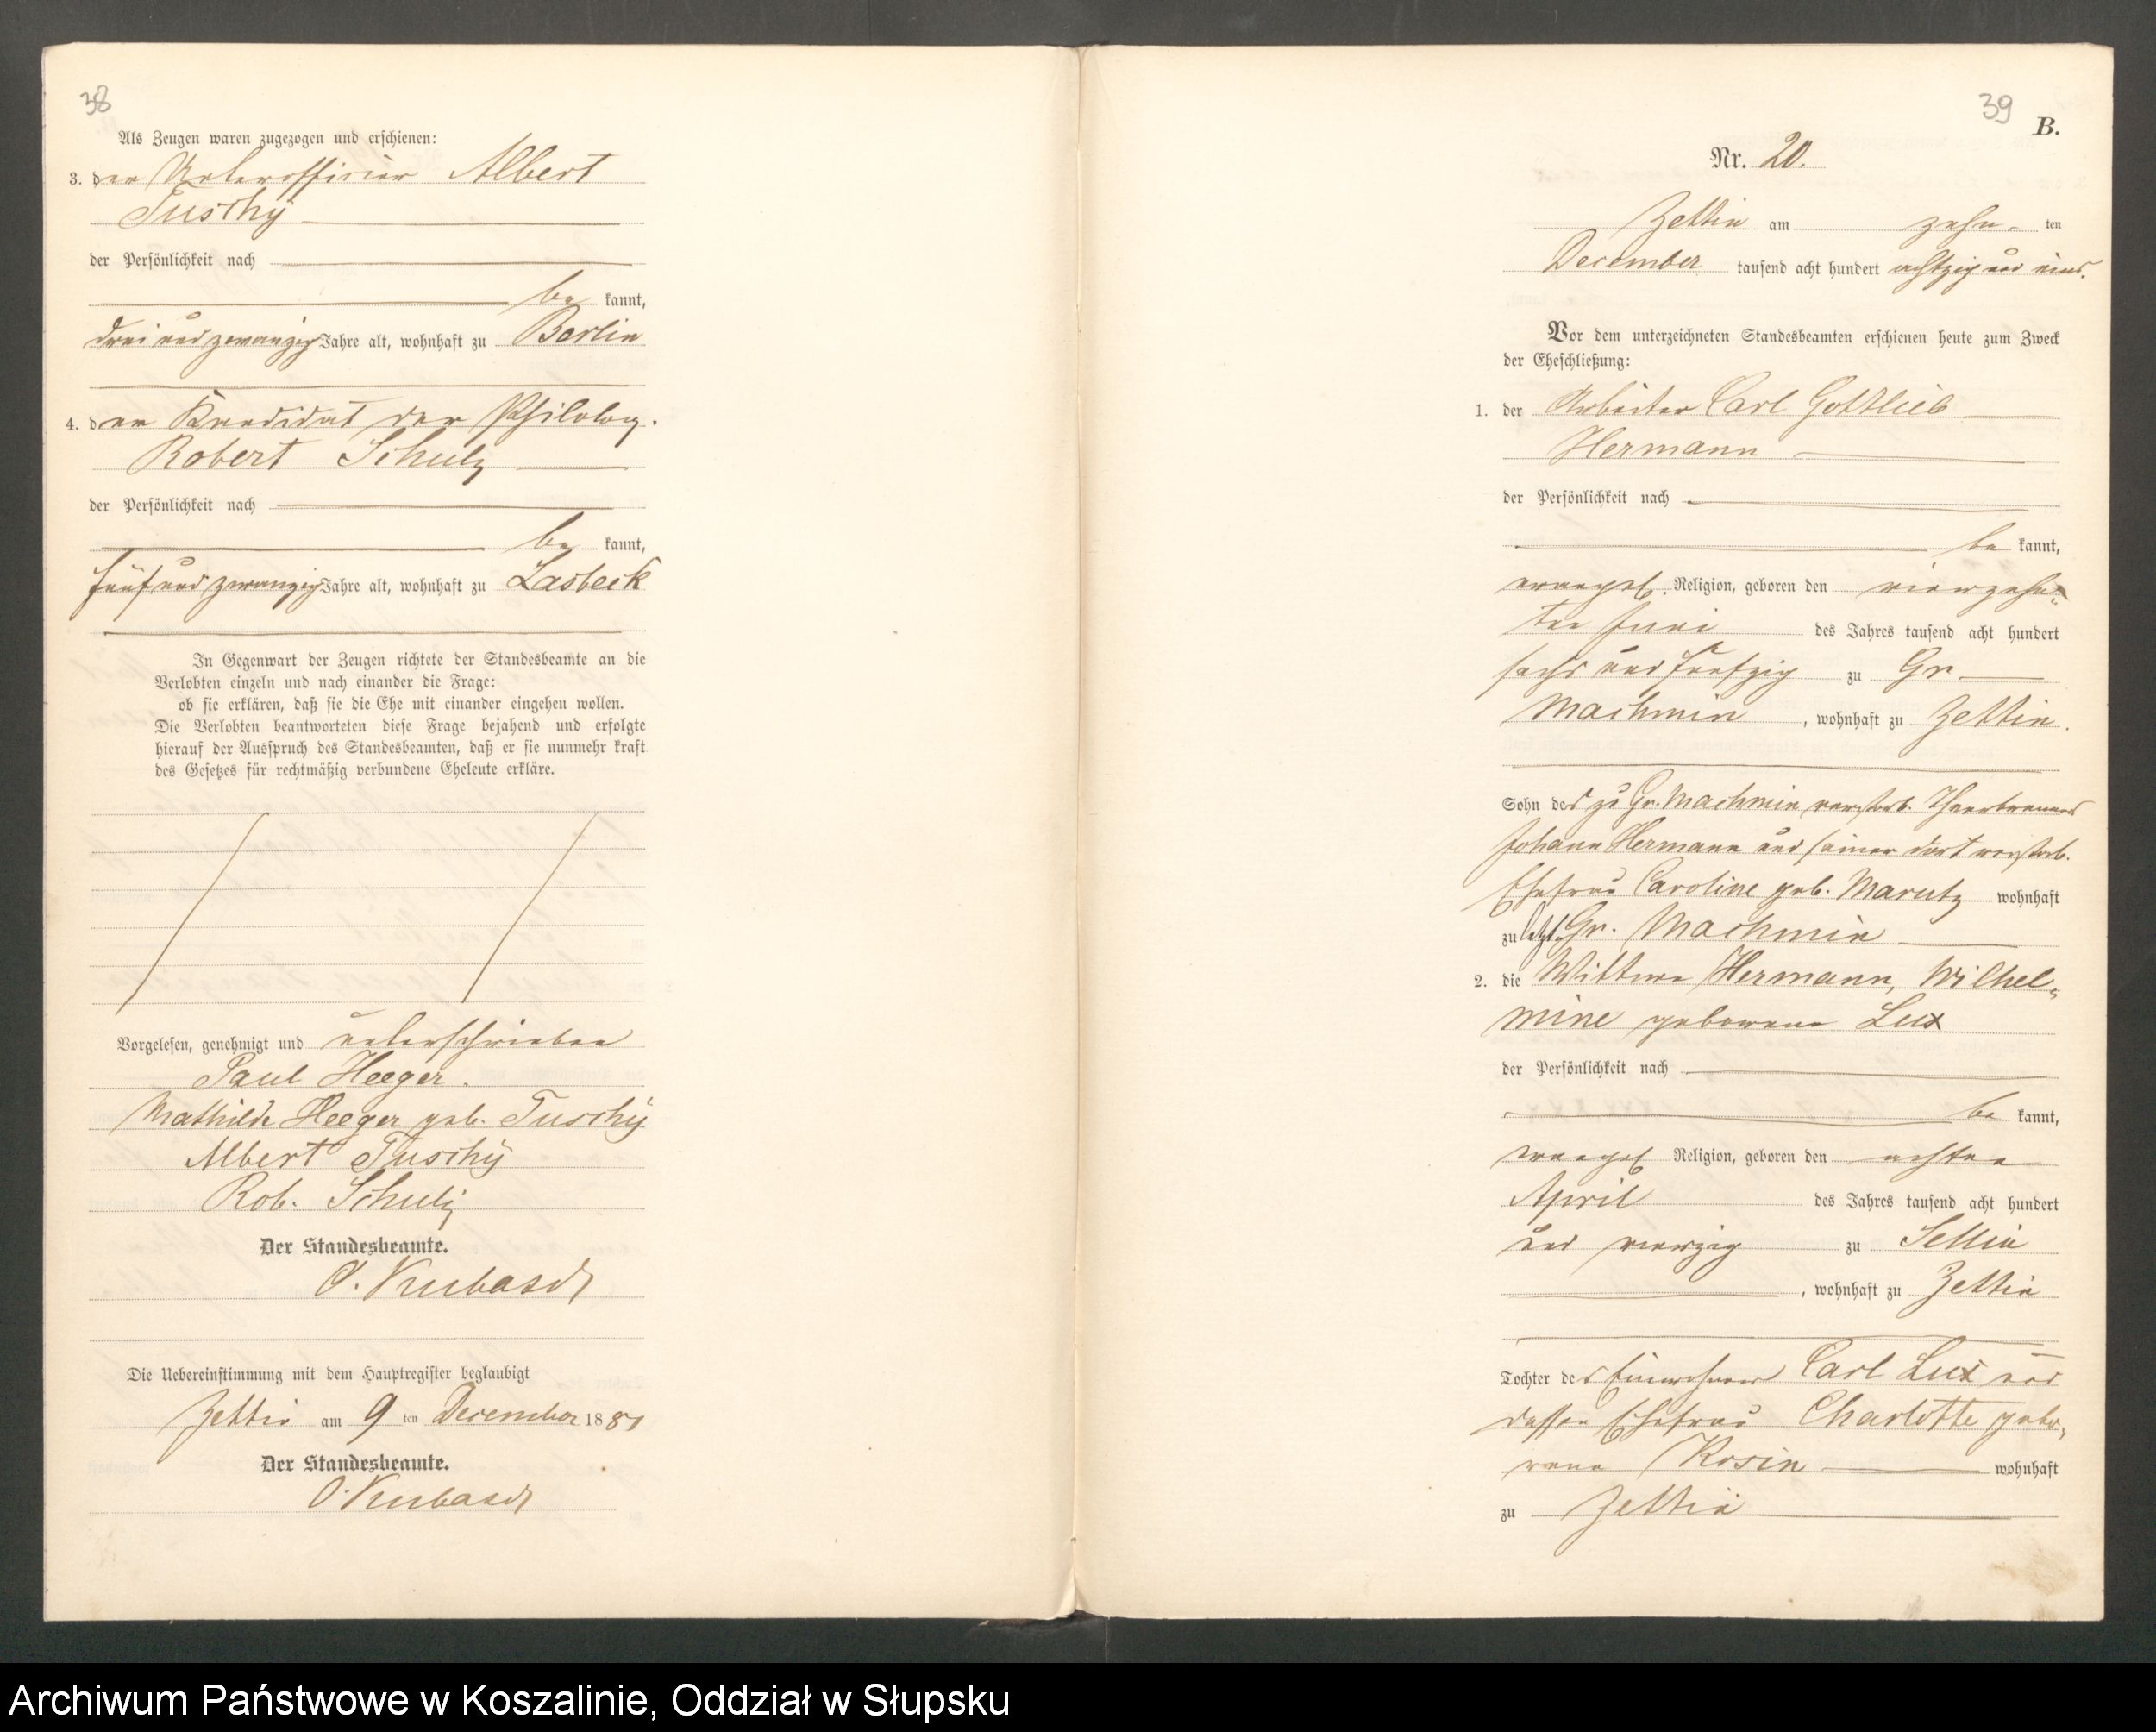 38
Als Zeugen waren zugezogen und erschienen:
3. der Unterofficier Albert
Tuschÿ
der Persönlichkeit nach
be kannt,
drei und zwanzig Jahre alt, wohnhaft zu Berlin
4. der Kandidat der Philolog.
Robert Schulz
der Persönlichkeit nach
be kannt,
fünf und zwanzig Jahre alt, wohnhaft zu Lasbeck
In Gegenwart der Zeugen richtete der Standesbeamte an die
Verlobten einzeln und nach einander die Frage:
ob sie erklären, daß sie die Ehe mit einander eingehen wollen.
Die Verlobten beantworteten diese Frage bejahend und erfolgte
hierauf der Ausspruch des Standesbeamten, daß er sie nunmehr kraft
des Gesetzes für rechtmäßig verbundene Eheleute erkläre.
Vorgelesen, genehmigt und unterschrieben
Paul Heeger.
Mathilde Heeger geb. Tuschÿ
Albert Tuschÿ
Rob. Schulz
Der Standesbeamte.
O. Kubasch
Die Uebereinstimmung mit dem Hauptregister beglaubigt
Zettin am 9 ten December 1881
Der Standesbeamte.
O. Kubasch
39
B.
Nr. 20.
Zettin am zehn- ten
December tausend acht hundert achtzig und eins.
Vor dem unterzeichneten Standesbeamten erschienen heute zum Zweck
der Eheschließung:
1. der Arbeiter Carl Gottlieb
Hermann
der Persönlichkeit nach
be kannt,
evangel. Religion, geboren den vierzehn-
ten Juni des Jahres tausend acht hundert
sechs und fünfzig zu Gr.
Machmin, wohnhaft zu Zettin.
Sohn des zu Gr. Machmin verstorb. Theerbrenners
Johann Hermann und seiner dort verstorb.
Ehefrau Caroline geb. Marutz wohnhaft
zu letzt Gr. Machmin
2. die Wittwe Hermann, Wilhel-
mine geborene Lux
der Persönlichkeit nach
be kannt,
evangel Religion, geboren den achten
April des Jahres tausend acht hundert
und vierzig zu Sellin
, wohnhaft zu Zettin
Tochter des Einwohner Carl Lux und
dessen Ehefrau Charlotte gebo-
rene Rosin wohnhaft
zu Zettin
Archiwum Państwowe w Koszalinie, Oddział w Słupsku